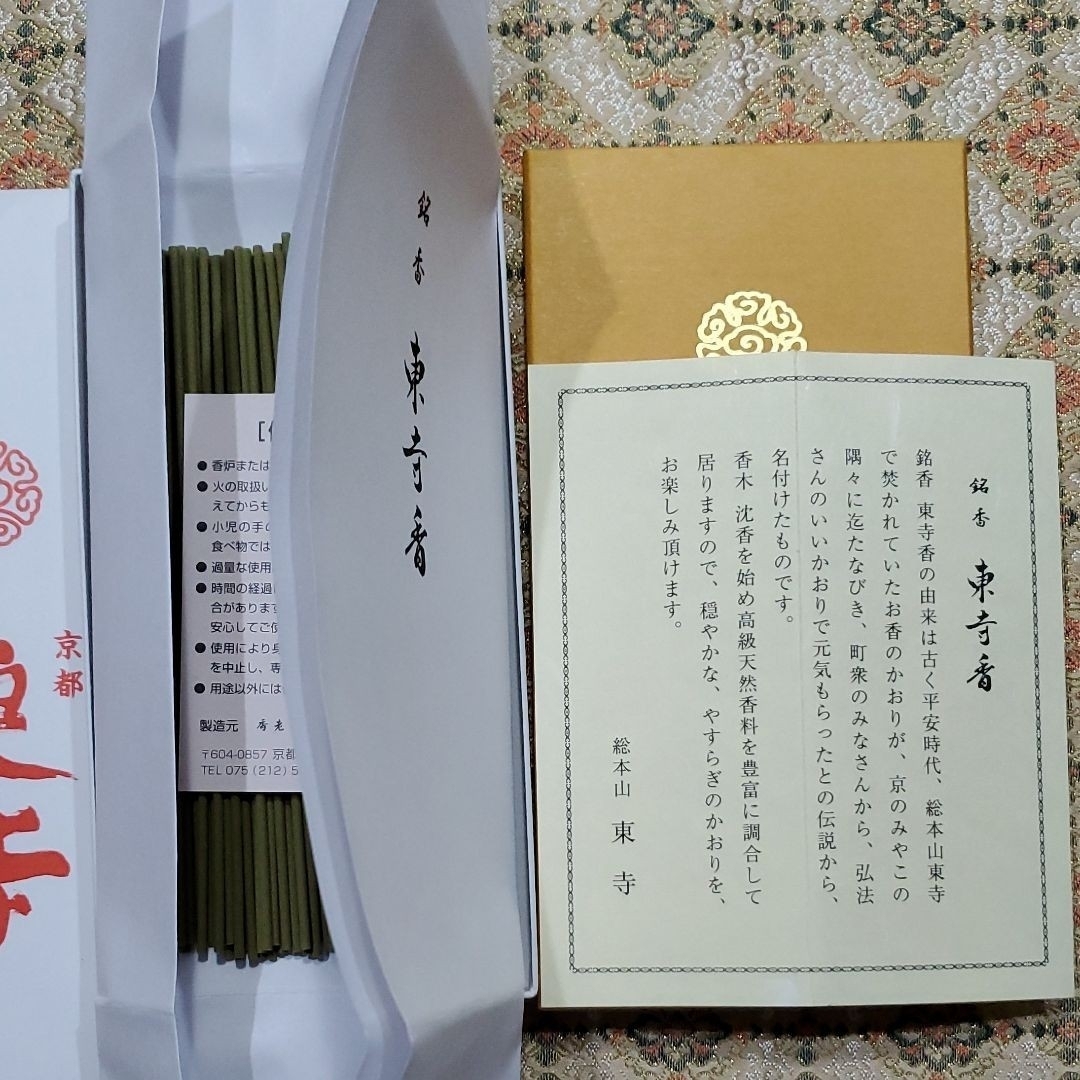 銘香 東寺香
銘香 東寺香の由来は古く平安時代、総本山東寺
で焚かれていたお香のかおりが、京のみやこの
隅々に迄たなびき、町衆のみなさんから、弘法
さんのいいかおりで元気もらったとの伝説から、
名付けたものです。
香木 沈香を始め高級天然香料を豊富に調合して
居りますので、穏やかな、やすらぎのかおりを、
お楽しみ頂けます。
総本山 東寺
銘香 東寺香
●香炉または
●火の取扱い
えてからも
●小児の手の
食べ物では
●過量な使用
●時間の経過
合があります
安心してご使
●使用により身
を中止し、専
●用途以外には
製造元 香老
〒604-0857 京都
TEL 075 (212) 5
京都